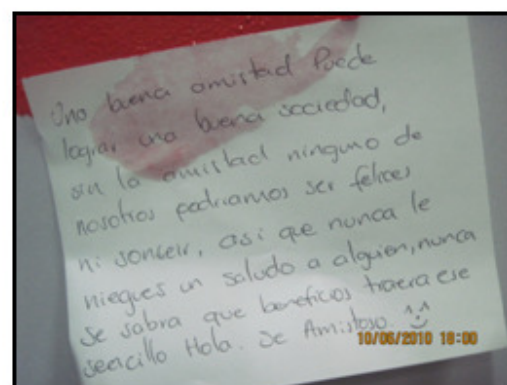 Una buena amistad Puede
lograr una buena sociedad,
sin la amistad ninguno de
nosotros podriamos ser felices
ni sonreir, asi que nunca le
niegues un saludo a alguien, nunca
se sabra que beneficios traera ese
sencillo Hola. Se Amistoso. ^^
10/06/2010 18:00